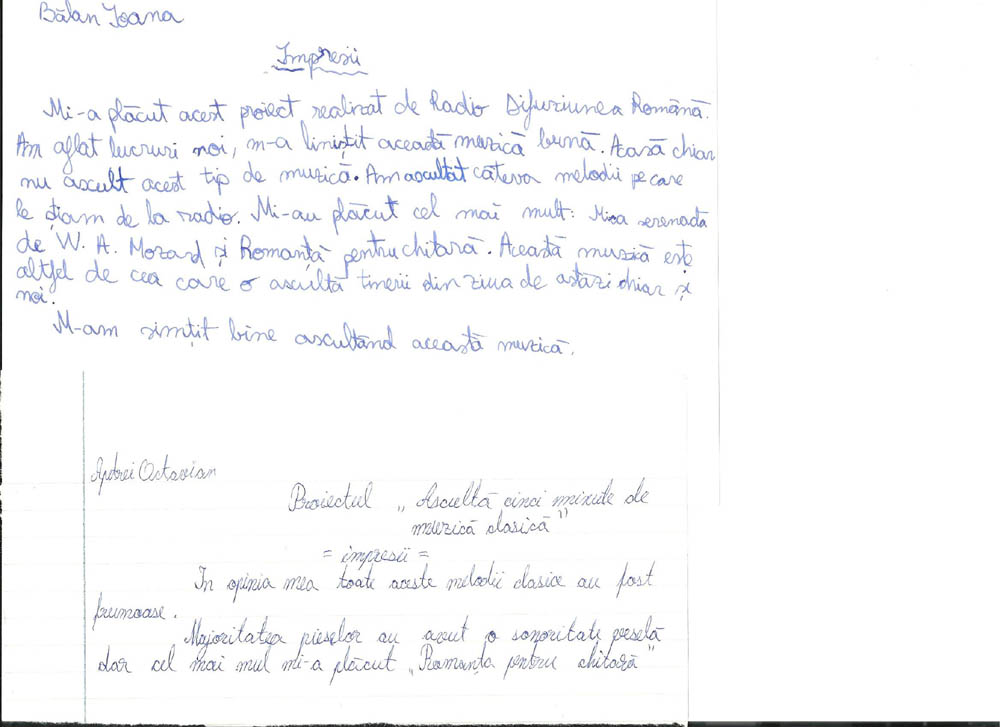 Bălan Ioana
Impresii
Mi-a plăcut acest proiect realizat de Radio Difuziunea Română.
Am aflat lucruri noi, m-a liniștit această muzică bună. Acasă chiar
nu ascult acest tip de muzică. Am ascultat câteva melodii pe care
le știam de la radio. Mi-au plăcut cel mai mult: Mica serenada
de W. A. Mozard și Romanță pentru chitară. Această muzică este
altfel de cea care o ascultă tinerii din ziua de astăzi chiar și
noi.
M-am simțit bine ascultând această muzică.
Octavian
Proiectul „Ascultă cinci minute de
muzică clasică"
= impresii =
In opinia mea toate aceste melodii clasice au fost
frumoase.
Majoritatea pieselor au avut o sonoritate veselă
dar cel mai mul mi-a plăcut „Romanța pentru chitară"